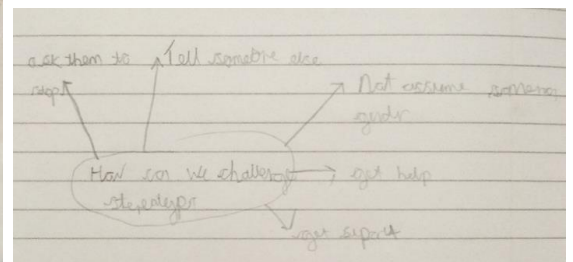 ask them to
stop
Tell somebie else
Not assume someno
gender
How can we challenge
steretypr
get help
get suport